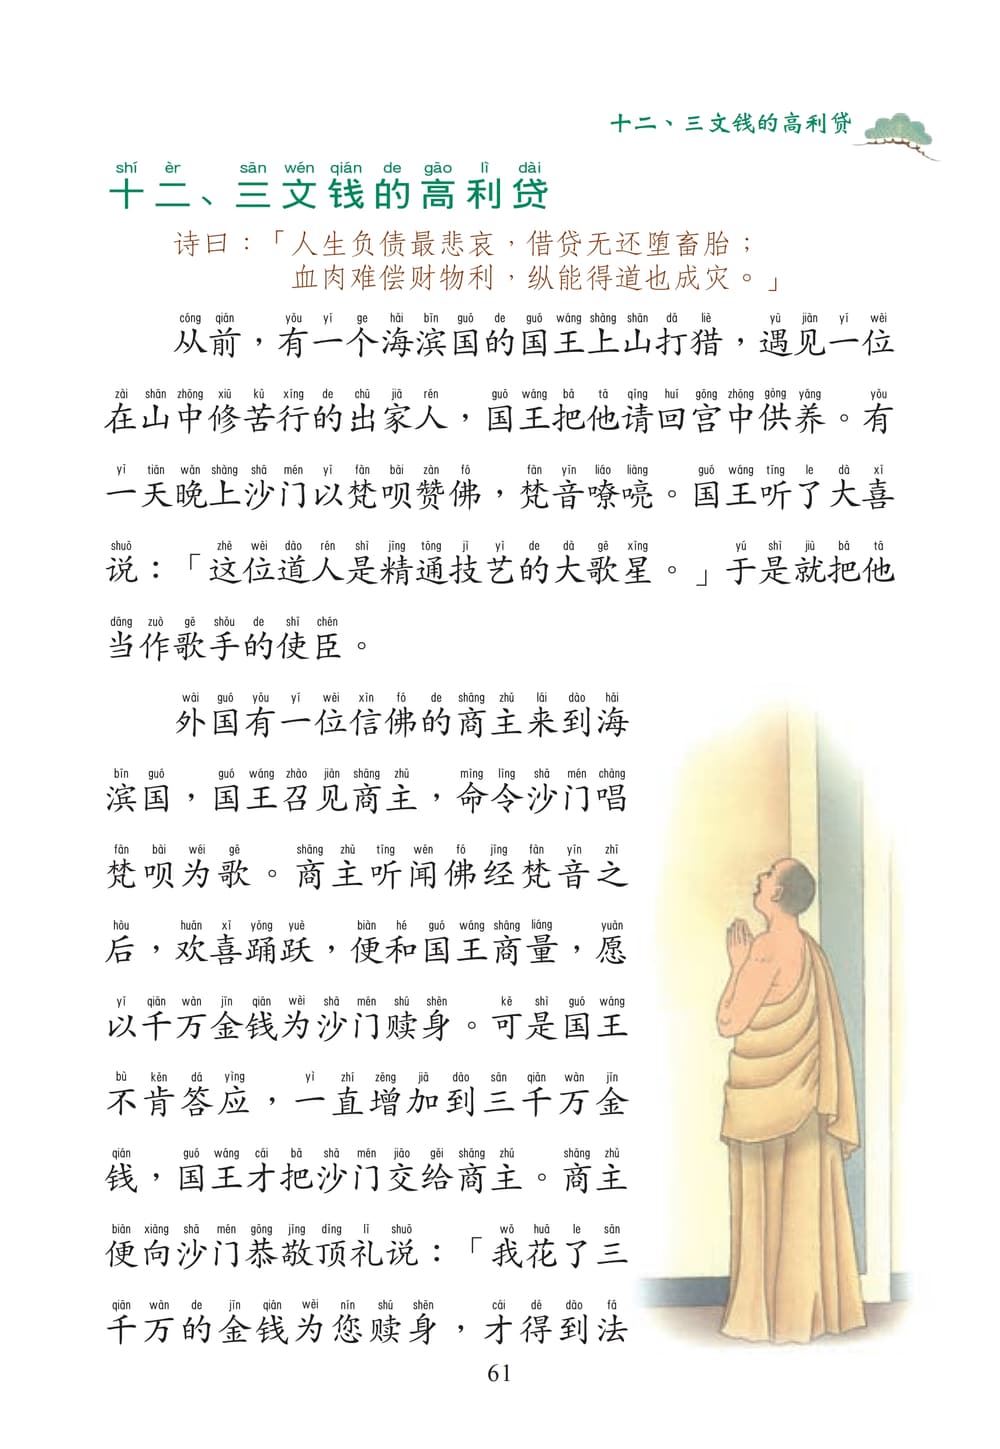 十二、三文钱的高利贷
shí èr sān wén qián de gāo lì dài
十二、三文钱的高利贷
诗曰：「人生负债最悲哀，借贷无还堕畜胎；
血肉难偿财物利，纵能得道也成灾。」
cóng qián yǒu yí ge hǎi bīn guó de guó wáng shàng shān dǎ liè yù jiàn yí wèi
从前，有一个海滨国的国王上山打猎，遇见一位
zài shān zhōng xiū kǔ xíng de chū jiā rén guó wáng bǎ tā qǐng huí gōng zhōng gòng yǎng yǒu
在山中修苦行的出家人，国王把他请回宫中供养。有
yì tiān wǎn shàng shā mén yǐ fàn bài zàn fó fàn yīn liáo liàng guó wáng tīng le dà xǐ
一天晚上沙门以梵呗赞佛，梵音嘹喨。国王听了大喜
shuō zhè wèi dào rén shì jīng tōng jì yì de dà gē xīng yú shì jiù bǎ tā
说：「这位道人是精通技艺的大歌星。」于是就把他
dāng zuò gē shǒu de shǐ chén
当作歌手的使臣。
wài guó yǒu yí wèi xìn fó de shāng zhǔ lái dào hǎi
外国有一位信佛的商主来到海
bīn guó guó wáng zhào jiàn shāng zhǔ mìng lìng shā mén chàng
滨国，国王召见商主，命令沙门唱
fàn bài wéi gē shāng zhǔ tīng wén fó jīng fàn yīn zhī
梵呗为歌。商主听闻佛经梵音之
hòu huān xǐ yǒng yuè biàn hé guó wáng shāng liáng yuàn
后，欢喜踊跃，便和国王商量，愿
yǐ qiān wàn jīn qián wèi shā mén shú shēn kě shì guó wáng
以千万金钱为沙门赎身。可是国王
bù kěn dá yìng yì zhí zēng jiā dào sān qiān wàn jīn
不肯答应，一直增加到三千万金
qián guó wáng cái bǎ shā mén jiāo gěi shāng zhǔ shāng zhǔ
钱，国王才把沙门交给商主。商主
biàn xiàng shā mén gōng jìng dǐng lǐ shuō wǒ huā le sān
便向沙门恭敬顶礼说：「我花了三
qiān wàn de jīn qián wèi nín shú shēn cái dé dào fǎ
千万的金钱为您赎身，才得到法
61